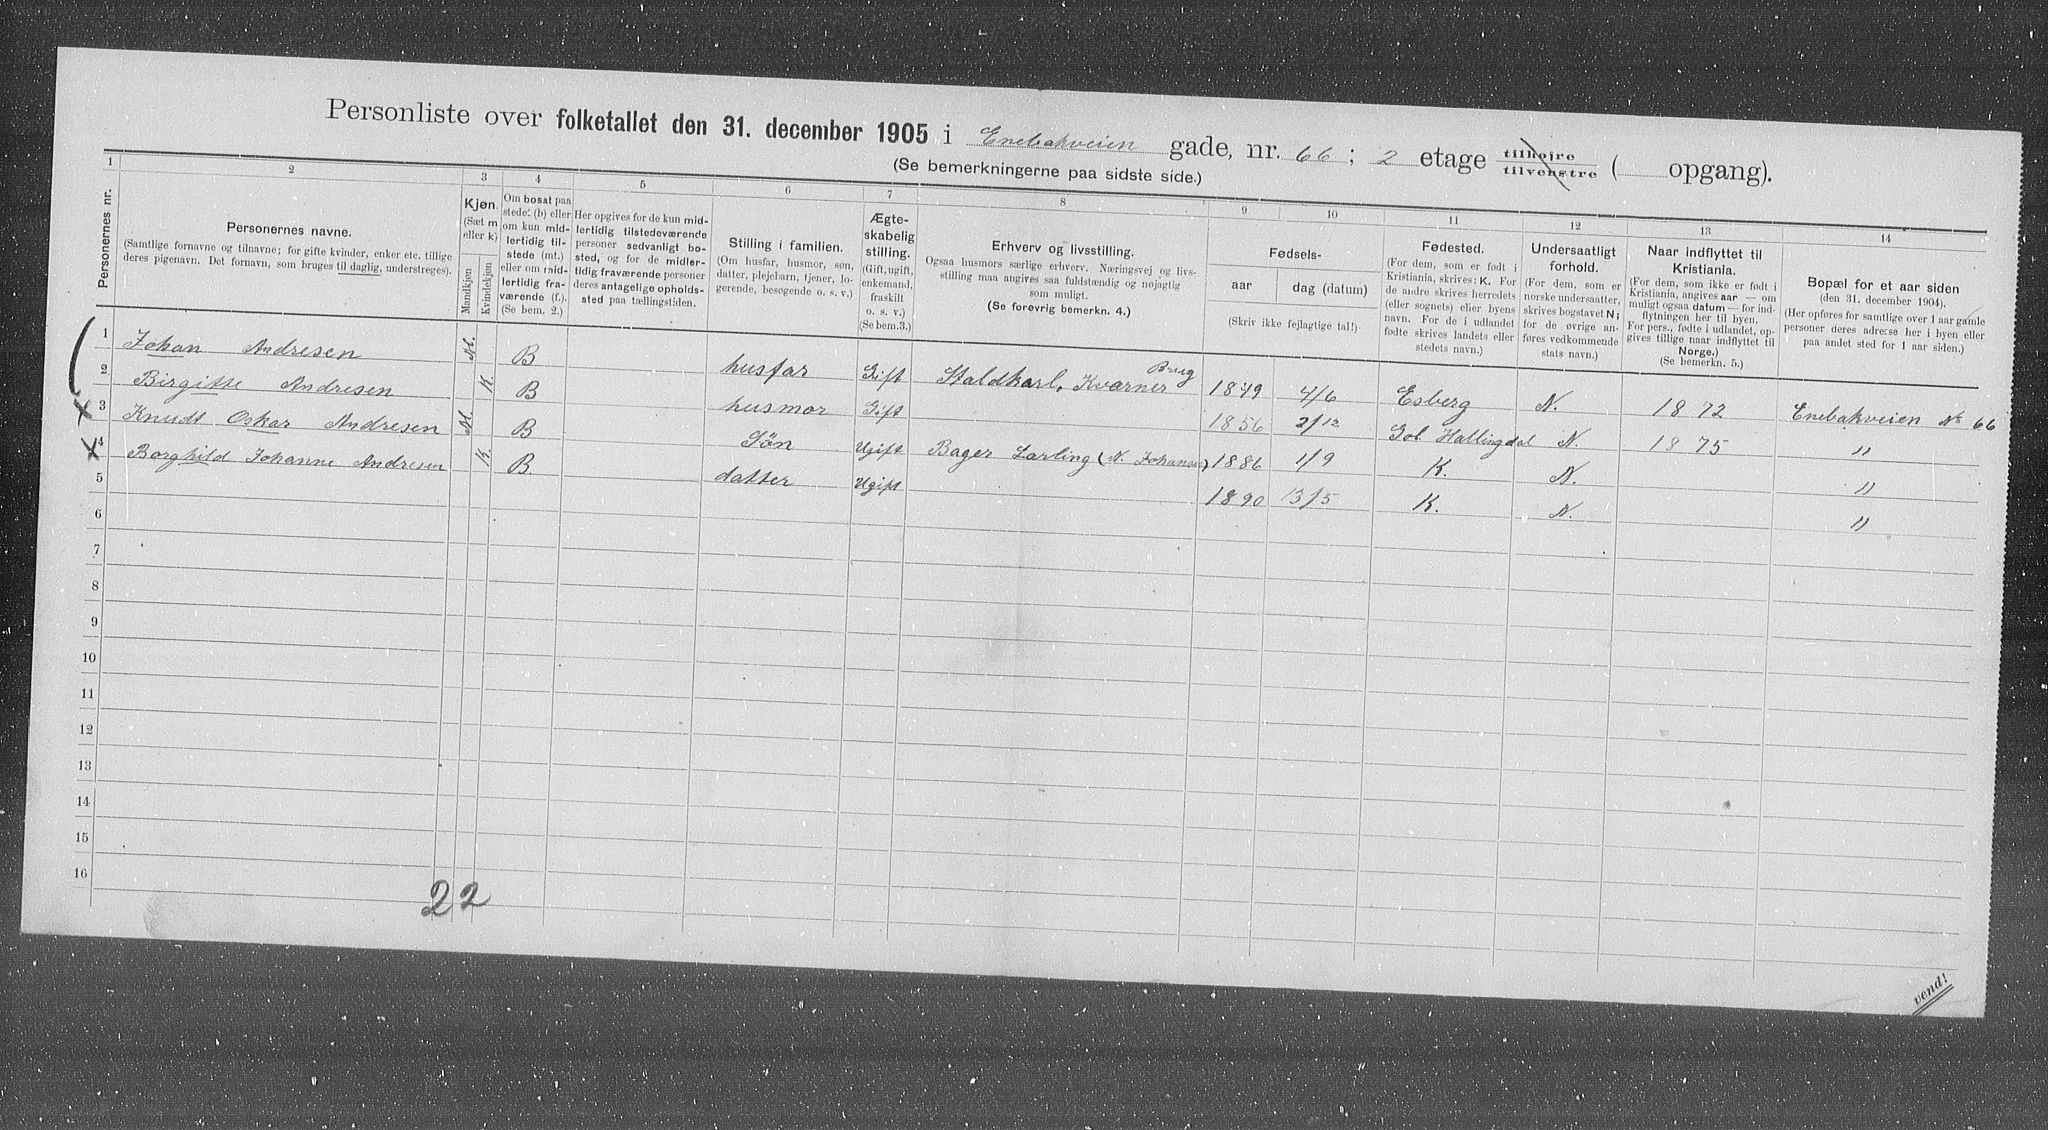 Personliste over folketallet den 31. december 1905 i Enebakveien gade, nr. 66; 2 etage tilhøjre tilvenstre ( opgang).
(Se bemerkningerne paa sidste side.)
1 2 3 4 5 6 7 8 9 10 11 12 13 14
Personernes nr.
Personernes navne.
(Samtlige fornavne og tilnavne; for gifte kvinder, enker etc. tillige
deres pigenavn. Det fornavn, som bruges til daglig, understreges).
Kjøn.
(Sæt m
eller k)
Mandkjøn
Kvindekjøn
Om bosat paa
stedet (b) eller
om kun mid-
lertidig til-
stede (mt.)
eller om mid-
lertidig fra-
værende (f.).
(Se bem. 2.)
Her opgives for de kun mid-
lertidig tilstedeværende
personer sedvanligt bo-
sted, og for de midler-
tidig fraværende personer
deres antagelige opholds-
sted paa tællingstiden.
Stilling i familien.
(Om husfar, husmor, søn,
datter, plejebarn, tjener, lo-
gerende, besøgende o. s. v.)
Ægte-
skabelig
stilling.
(Gift, ugift,
enkemand,
fraskilt
o. s. v.)
(Se bem.3.)
Erhverv og livsstilling.
Ogsaa husmors særlige erhverv. Næringsvej og livs-
stilling maa angives saa fuldstændig og nøjagtig
som muligt.
(Se forøvrig bemerkn. 4.)
Fødsels-
aar dag (datum)
(Skriv ikke fejlagtige tal!)
Fødested.
(For dem, som er født i
Kristiania, skrives: K. For
de andre skrives herredets
(eller sognets) eller byens
navn. For de i udlandet
fødte skrives landets eller
stedets navn.)
Undersaatligt
forhold.
(For dem, som er
norske undersaatter,
skrives bogstavet N;
for de øvrige an-
føres vedkommende
stats navn.)
Naar indflyttet til
Kristiania.
(For dem, som ikke er født i
Kristiania, angives aar — om
muligt ogsaa datum — for ind-
flytningen her til byen.
For pers., fødte i udlandet, op-
gives tillige naar indflyttet til
Norge.)
(Se bemerkn. 5.)
Bopæl for et aar siden
(den 31. december 1904).
(Her opføres for samtlige over 1 aar gamle
personer deres adresse her i byen eller
paa andet sted for 1 aar siden.)
1 Johan Andresen M. B husfar Gift Staldkarl, Kværner Brug 1849 4/6 Esberg N. 1872 Enebakveien No 66
2 Birgitte Andresen K. B husmor Gift 1856 2/12 Gol Hallingdal N. 1875 "
3 Knudt Oskar Andresen M B Søn Ugift Bager Lærling (N. Johansen) 1886 1/9 K. N. "
4 Borghild Johanne Andresen K. B. datter Ugift 1890 13/5 K. N. "
5
6
7
8
9
10
11
12
13
14
15
16
22
vend!